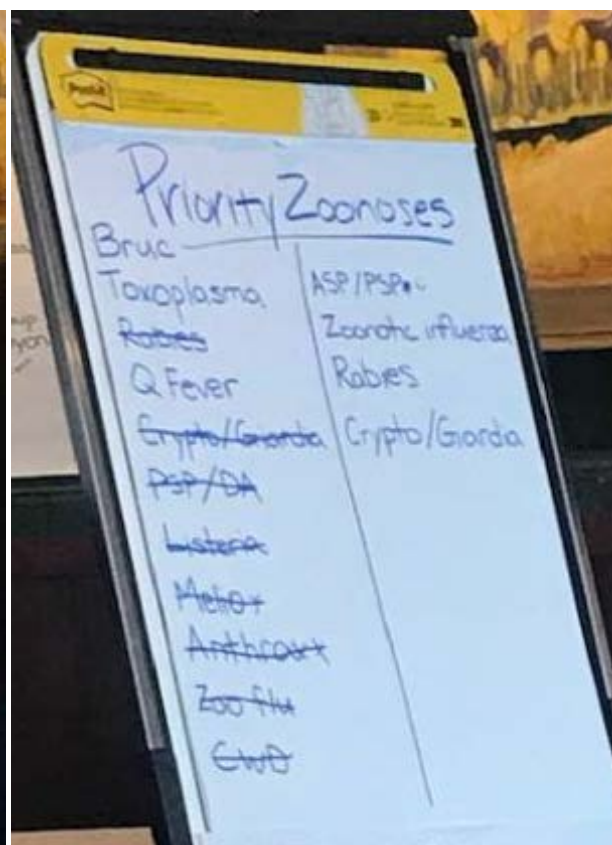 Post-it
Priority Zoonoses
Bruc
Toxoplasma
Rabies
Q Fever
Crypto/Giardia
PSP/DA
Listeria
Anthrax
Zoo flu
CWD
ASP/PSP
Zoonotic influenza
Rabies
Crypto/Giardia